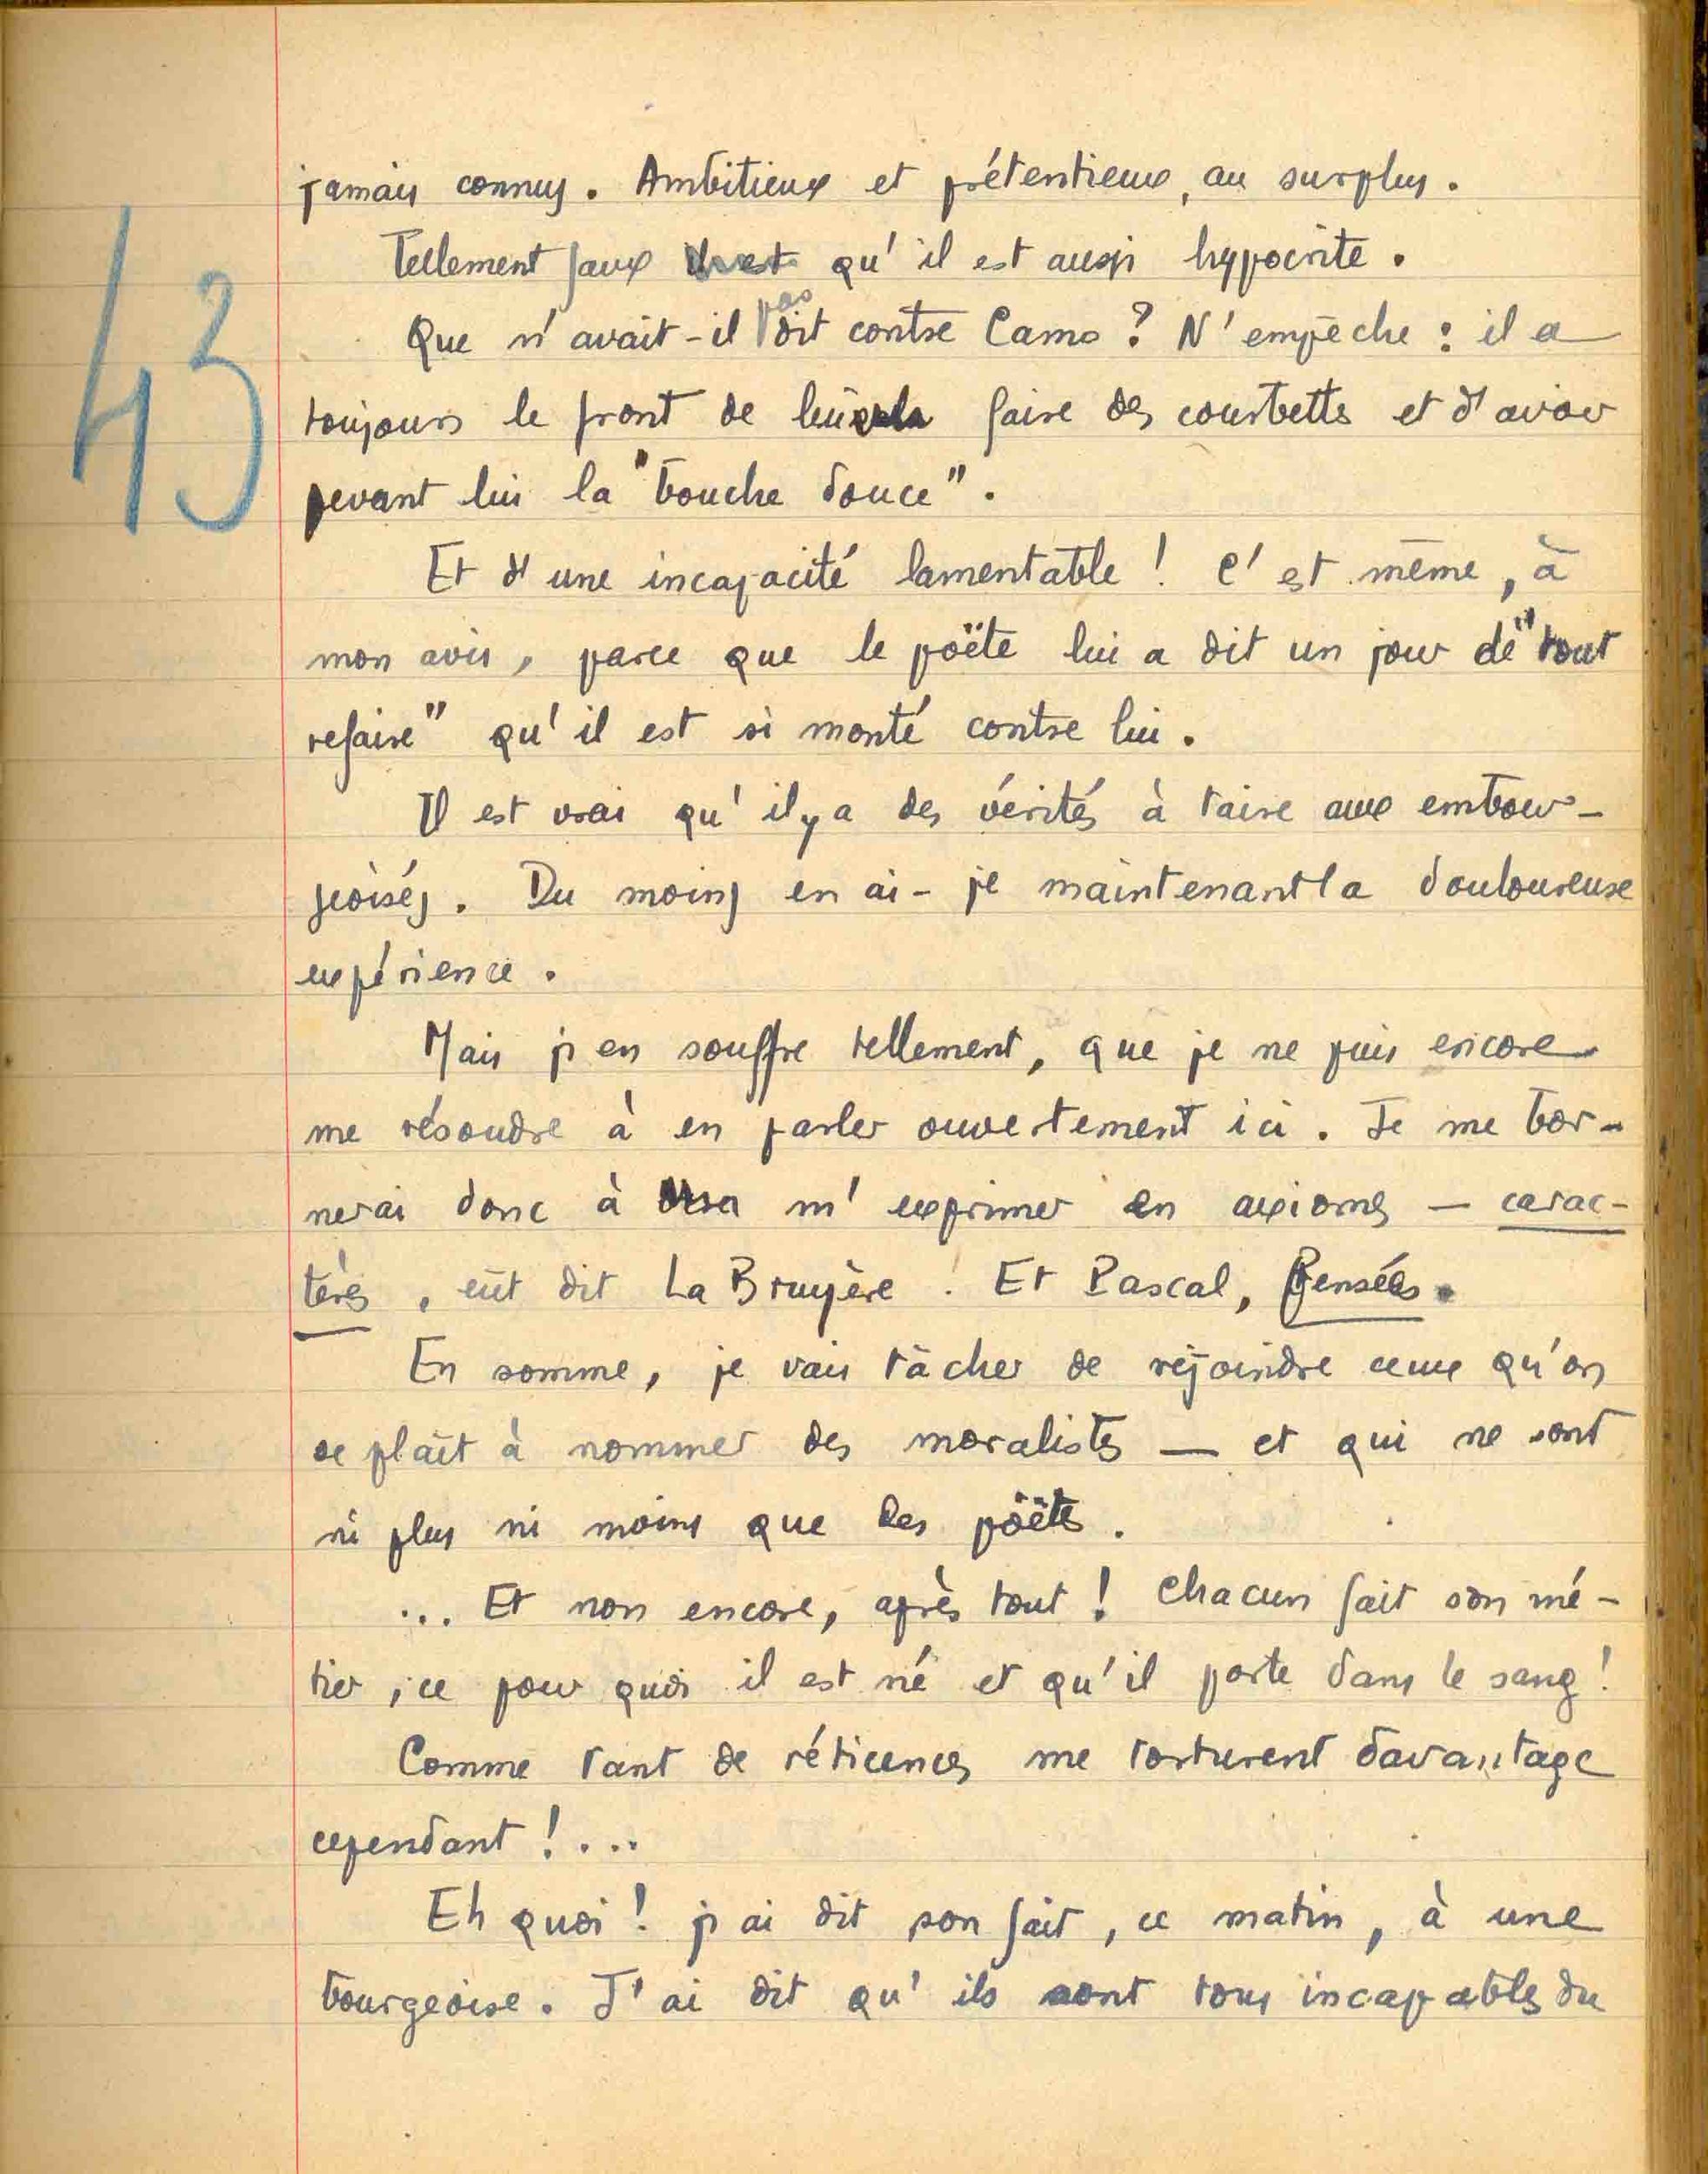 43
jamais connus. Ambitieux et prétentieux, au surplus.
Tellement faux il est qu'il est aussi hypocrite.
Que n'avait-il pas dit contre Camo ? N'empêche : il a
toujours le front de lui faire des courbettes et d'avoir
devant lui la "bouche douce".
Et d'une incapacité lamentable ! C'est même, à
mon avis, parce que le poëte lui a dit un jour de "tout
refaire" qu'il est si monté contre lui.
Il est vrai qu'il y a des vérités à taire aux embour-
geoisés. Du moins en ai-je maintenant la douloureuse
expérience.
Mais j'en souffre tellement, que je ne puis encore
me résoudre à en parler ouvertement ici. Je me bor-
nerai donc à m'exprimer en axiomes — carac-
tères, eût dit La Bruyère. Et Pascal, Pensées.
En somme, je vais tâcher de rejoindre ceux qu'on
se plaît à nommer des moralistes — et qui ne sont
ni plus ni moins que des poëtes.
... Et non encore, après tout ! Chacun fait son mé-
tier, ce pour quoi il est né et qu'il porte dans le sang !
Comme tant de réticences me torturent davantage
cependant !...
Eh quoi ! j'ai dit son fait, ce matin, à une
bourgeoise. J'ai dit qu'ils sont tous incapables du